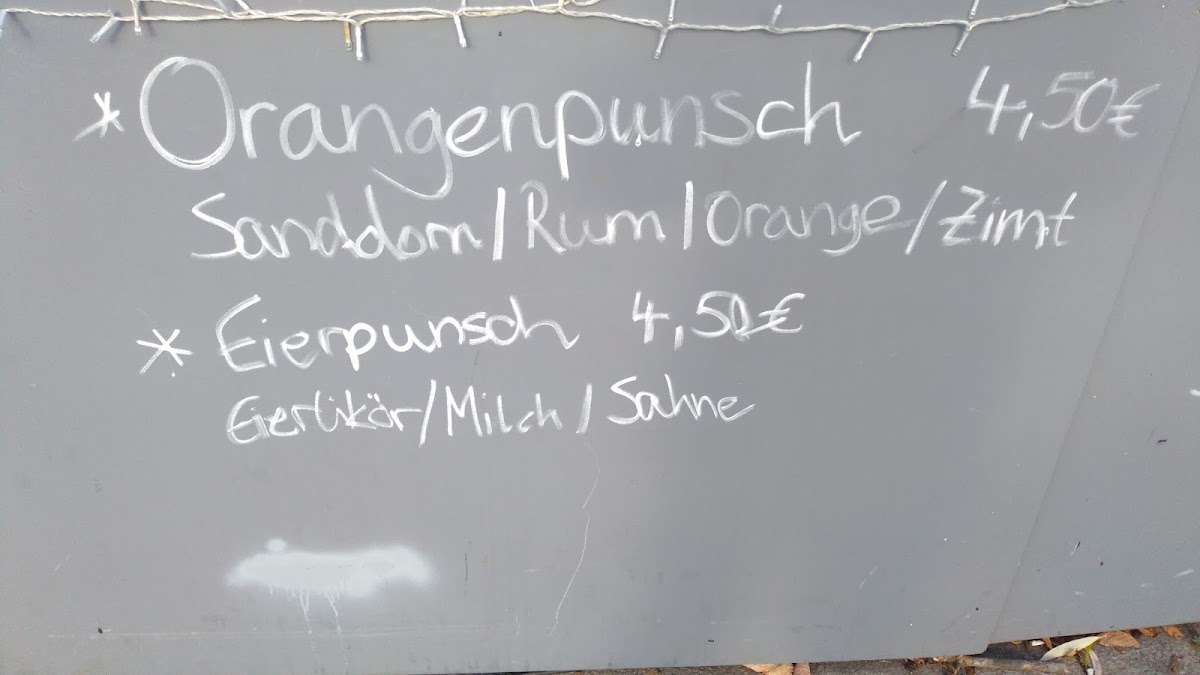 * Orangenpunsch 4,50€
Sanddorn/Rum/Orange/Zimt
* Eierpunsch 4,50€
Eierlikör/Milch/Sahne